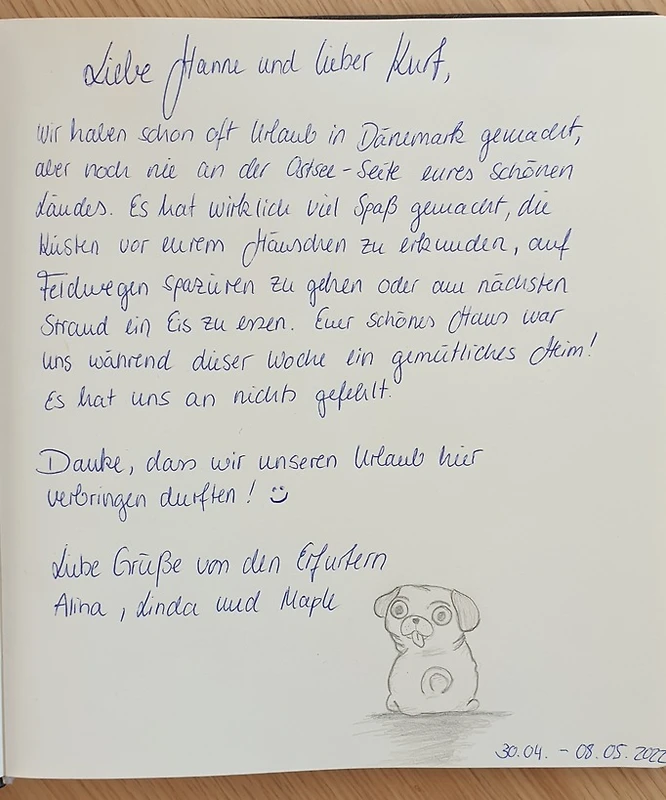 Liebe Hanne und lieber Kurt,
wir haben schon oft Urlaub in Dänemark gemacht,
aber noch nie an der Ostsee-Seite eures schönen
Landes. Es hat wirklich viel Spaß gemacht, die
Küsten vor eurem Häuschen zu erkunden, auf
Feldwegen spazieren zu gehen oder am nächsten
Strand ein Eis zu essen. Euer schönes Haus war
uns während dieser Woche ein gemütliches Heim!
Es hat uns an nichts gefehlt.
Danke, dass wir unseren Urlaub hier
verbringen durften! ☺
Liebe Grüße von den Erfurtern
Alina, Linda und Maple
30.04. - 08.05.2022